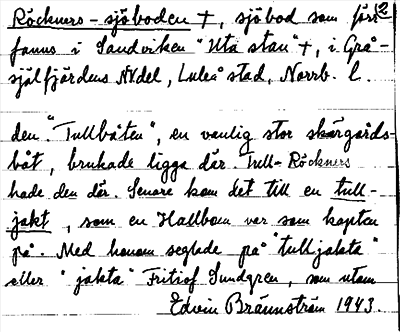 Röckners-sjöboden †, sjöbod som förr 2
fanns i Sandviken "Uta stan" †, i Grå-
själfjärdens NVdel, Luleå stad, Norrb. l.
den. "Tullbåten", en vanlig stor skärgårds-
båt, brukade ligga där. Tull-Röckners
hade den där. Senare kom det till en tull-
jakt, som en Hallbom var som kapten
på. Med honom seglade på "tulljakta"
eller "jakta" Fritiof Sundgren, som utom
Edvin Brännström 1943.